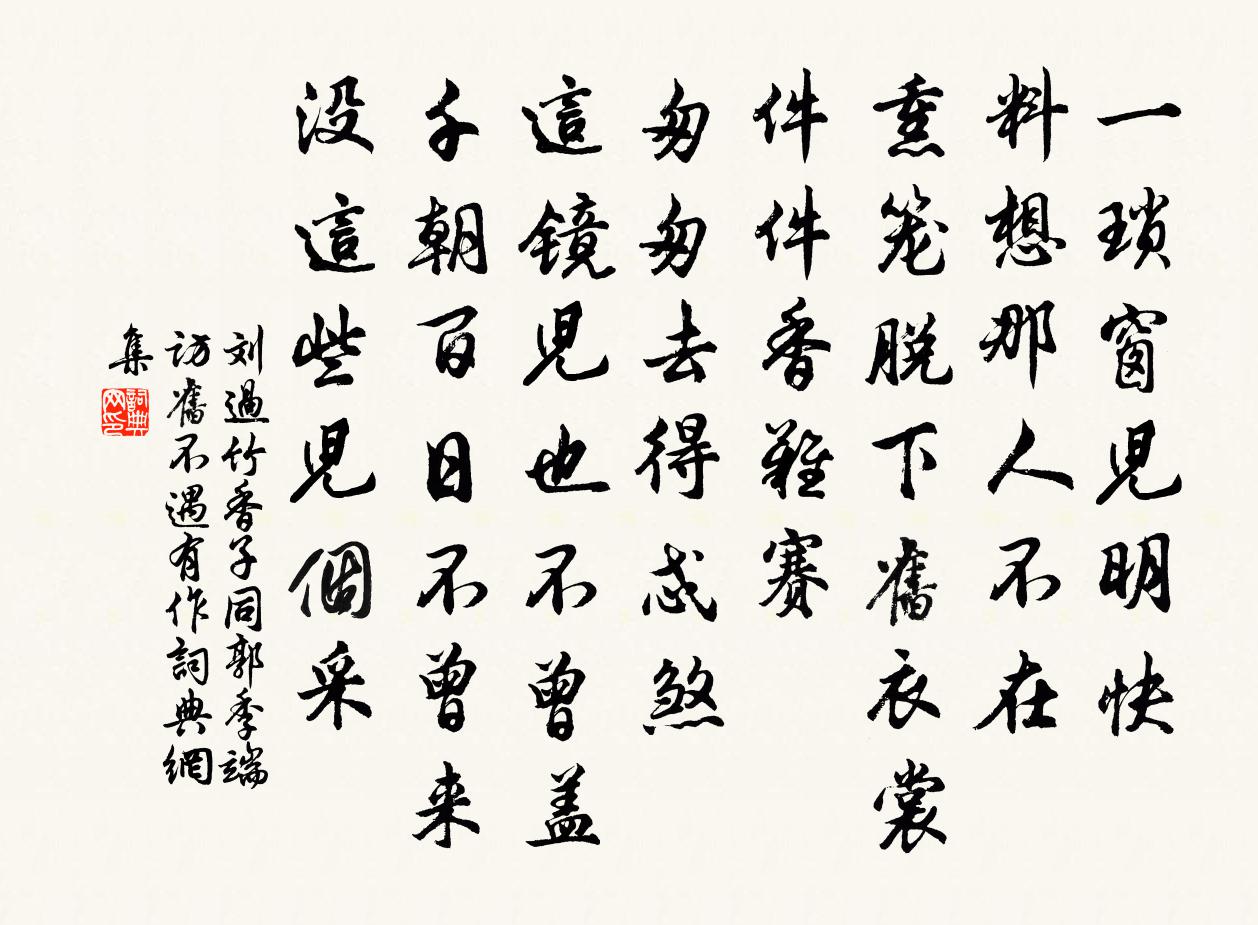 一瑣窗兒明快
料想那人不在
熏笼脱下舊衣裳
件件香難賽
匆匆去得忒煞
這镜兒也不曾盖
千朝百日不曾来
没這些兒個采
刘過竹香子同郭季端
訪舊不遇有作詞典網
集
詞典网印